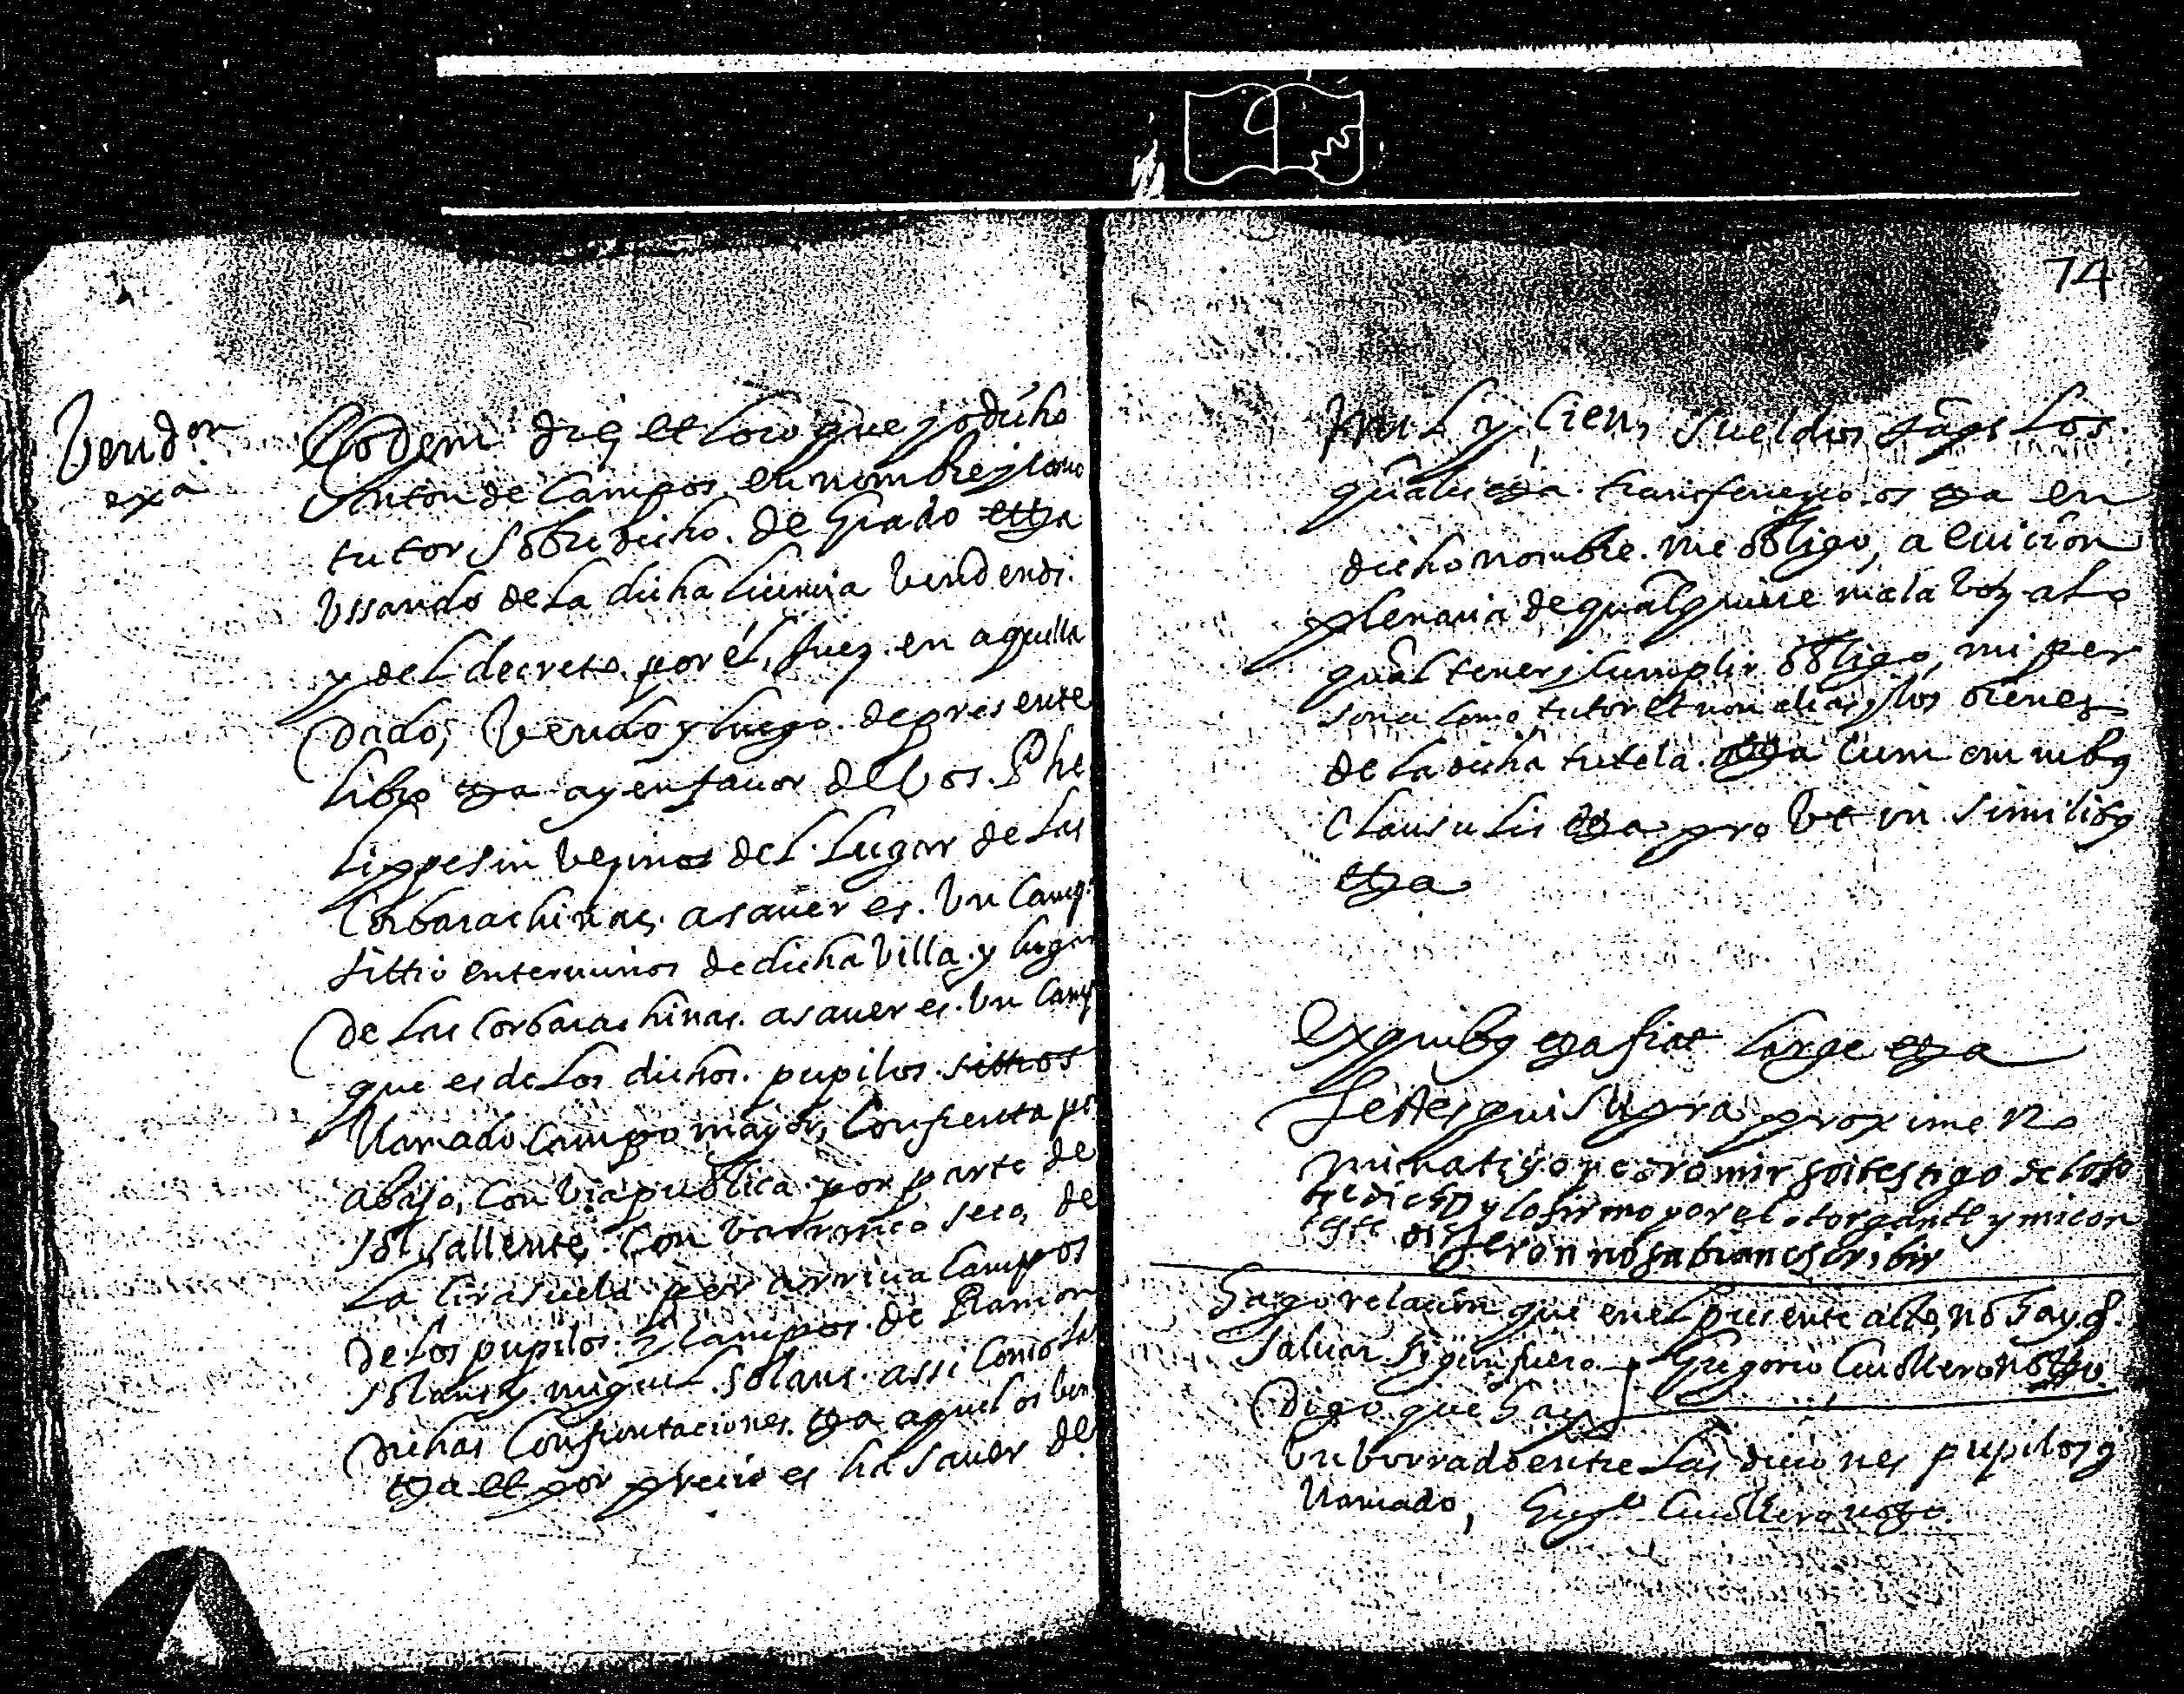 Vendon
exa
Eodem die et loco que yo dicho
Anton de Campos en nombre y como
tutor sobredicho. de Grado etza
Vssando de la dicha licencia Vendendi.
y del decreto por el, Juez. en aquella
Dado, Vendo y luego. de presente
libro etza ay en fauor de Vos. Phe
lippe sin Vezino del. Lugar de las
Corbarachinas, asauer es. Vn Camp.
sittio en terminos de dicha Villa. y lugar
De las Corbarachinas. asauer es. Vn Camp
que es de los dichos. pupilos. sittios
llamado Campo mayor, Confrenta por
abajo, Con Via publica. por parte de
sol, sallente, Con barranco seco, de
la Cirasuela por arriua Campos
De los pupilos. y Campos. de Ramon
solans y miguel. solans. assi Como las
Dichas Confrontaciones. etza aquel os ben
etza et por precio es ha sauer de
74
mil y Cien, sueldos Jaqs Los.
quales etza. transfiriendo os etza en
dicho nombre. me obligo, a euicion
plenaria de qualquiere mala Voz, a lo
qual tener y Cumplir obligo, mi per
sona Como tutor et non alias y los bienes
de la dicha tutela. etza Cum omnibus
Clausulis etza pro Vt in similibus
etza
Ex quibus etza fiat large etza
Testes qui supra proxime no
minati yo pedro mir soi testigo de lo so
bredicho y lo firmo por el otorgante y mi con
teste dixeron no sabian escribir
Hago relacion que en el presente acto, no hay q.
saluar. segun fuero. Gregorio Cuollero notto
Digo que hay
Vn borrado entre las diciones pupilos y
llamado, Gregº Cuollero noto.